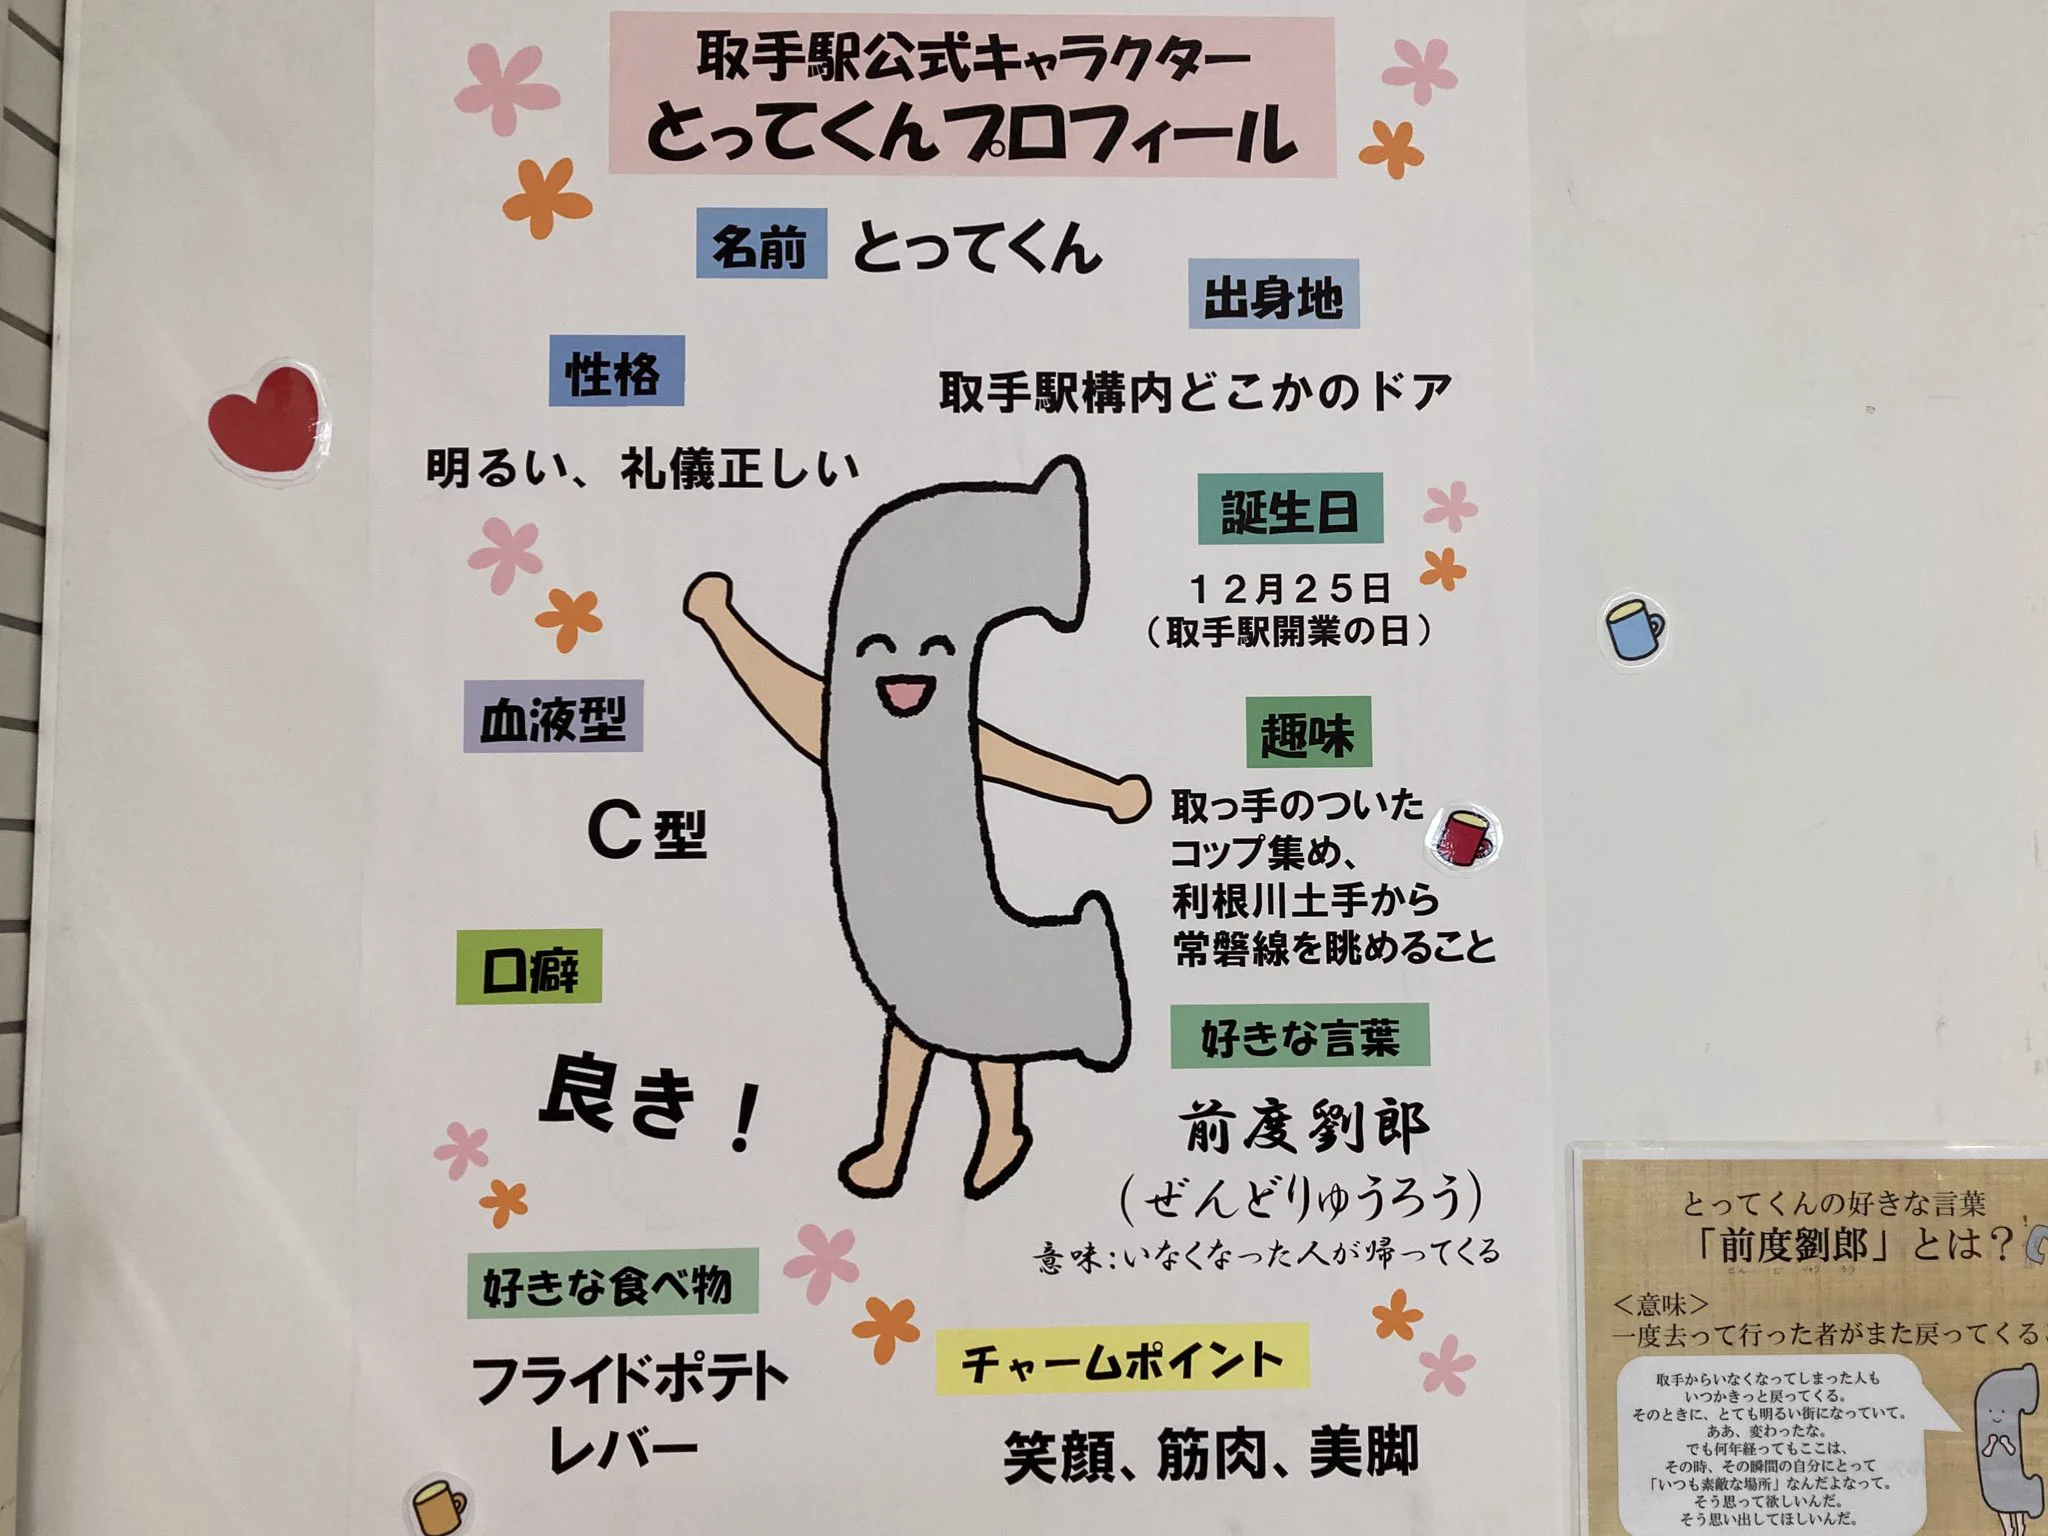 取手駅公式キャラクター
とってくんプロフィール
名前 とってくん
出身地
取手駅構内どこかのドア
性格
明るい、礼儀正しい
誕生日
１２月２５日
（取手駅開業の日）
血液型
C型
趣味
取っ手のついた
コップ集め、
利根川土手から
常磐線を眺めること
口癖
良き！
好きな言葉
前度劉郎
(ぜんどりゅうろう)
意味:いなくなった人が帰ってくる
好きな食べ物
フライドポテト
レバー
チャームポイント
笑顔、筋肉、美脚
とってくんの好きな言葉
「前度劉郎」とは？
ぜん ど りゅう ろう
＜意味＞
一度去って行った者がまた戻ってくる
取手からいなくなってしまった人も
いつかきっと戻ってくる。
そのときに、とても明るい街になっていて。
ああ、変わったな。
でも何年経ってもここは、
その時、その瞬間の自分にとって
「いつも素敵な場所」なんだよなって。
そう思って欲しいんだ。
そう思い出してほしいんだ。